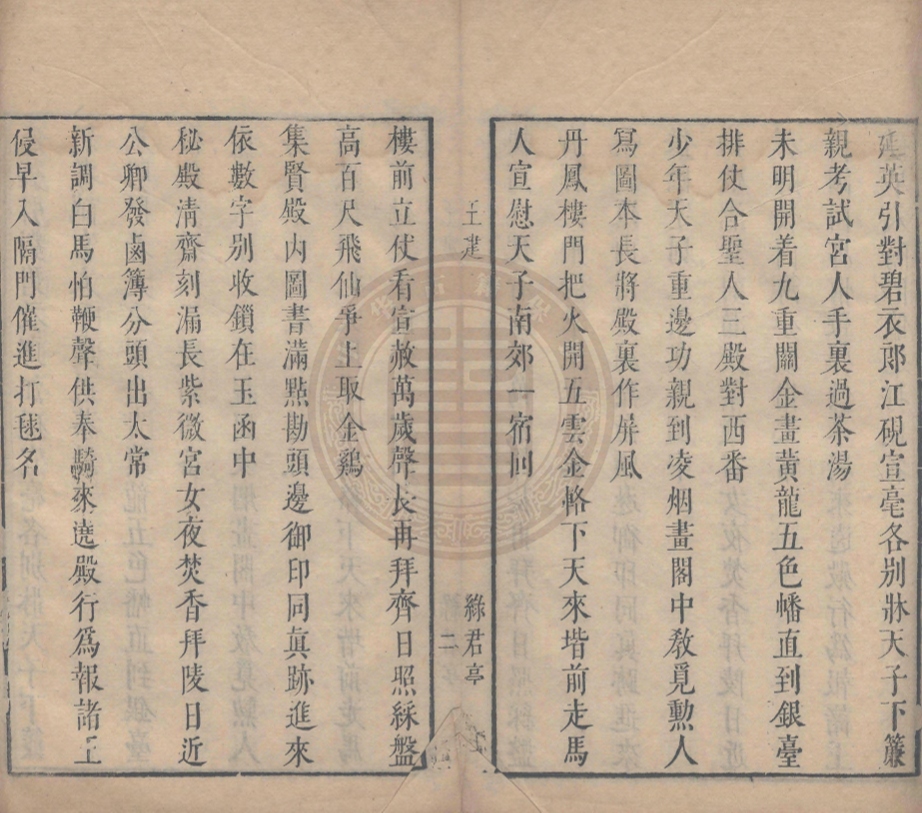 延英引對碧衣郎江硯宣毫各別牀天子下簾
親考試宮人手裏過茶湯
未明開着九重關金畫黃龍五色幡直到銀臺
排仗合聖人三殿對西番
少年天子重邊功親到凌烟畫閣中教覓勲人
寫圖本長將殿裏作屏風
丹鳳樓門把火開五雲金輅下天來堦前走馬
人宣慰天子南郊一宿回
王建
綠君亭
二
樓前立仗看宣赦萬歲聲長再拜齊日照綵盤
高百尺飛仙爭上取金鷄
集賢殿內圖書滿點勘頭邊御印同眞跡進來
依數字別收鎖在玉函中
秘殿清齋刻漏長紫微宮女夜焚香拜陵日近
公卿發鹵簿分頭出太常
新調白馬怕鞭聲供奉騎來遶殿行爲報諸王
侵早入隔門催進打毬名